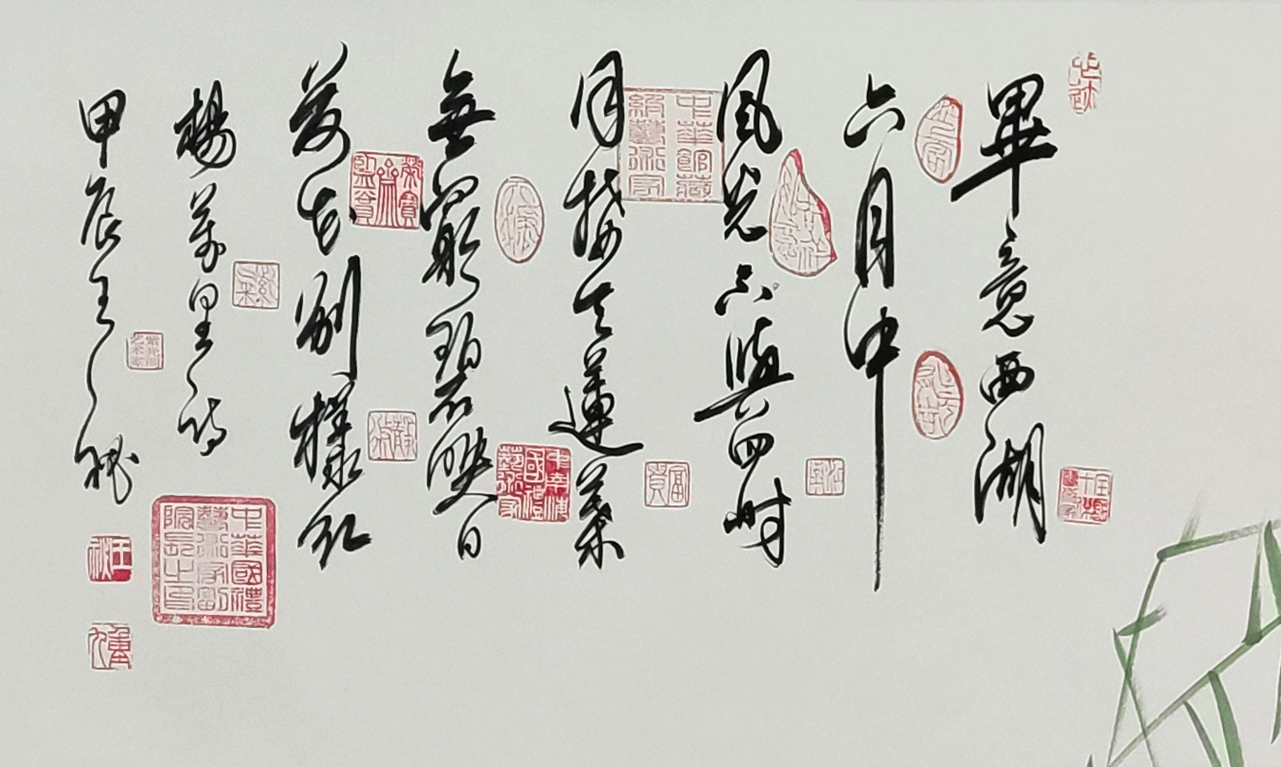 畢竟西湖
六月中
風光不與四時
同接天蓮葉
無窮碧暎日
荷花別樣紅
楊萬里詩
甲辰王
中華館藏級藝術家
中南海國禮藝術家
富貴
中華國禮藝術家副院長之印